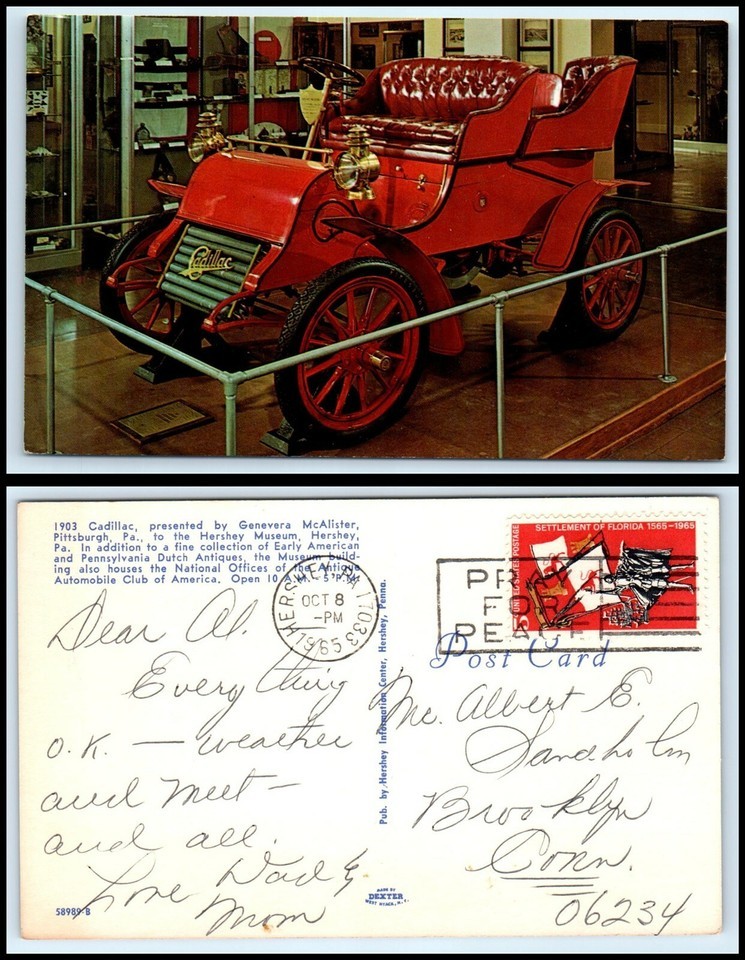 Cadillac
1903 Cadillac, presented by Genevera McAlister,
Pittsburgh, Pa., to the Hershey Museum, Hershey,
Pa. In addition to a fine collection of Early American
and Pennsylvania Dutch Antiques, the Museum build-
ing also houses the National Offices of the Antique
Automobile Club of America. Open 10 A.M. 5 P.M.
HERSHEY, PA. 17033
OCT 8
-PM
1965
SETTLEMENT OF FLORIDA 1565-1965
5¢ UNITED STATES POSTAGE
PRAY
FOR
PEACE
Post Card
Dear Al.
Every thing
O.K. — weather
and meet —
and all.
Love Dad &
Mom
Pub. by Hershey Information Center, Hershey, Penna.
Mr. Albert E.
Sandholm
Brooklyn
Conn.
06234
58989-B
MADE BY
DEXTER
WEST NYACK, N.Y.